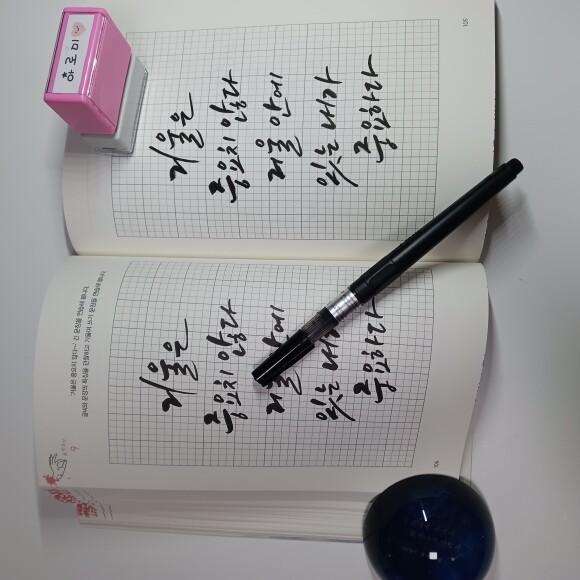 '거울은 중요치 않다~' 긴 문장을 연습해 봅니다.
글씨와 문장의 특징을 관찰하고 기울여 쓰기 문장을 연습해 봅니다.
거울은
중요치 않다
거울 안에
있는 내가
중요하다
거울은
중요치 않다
거울 안에
있는 내가
중요하다
105
하로미